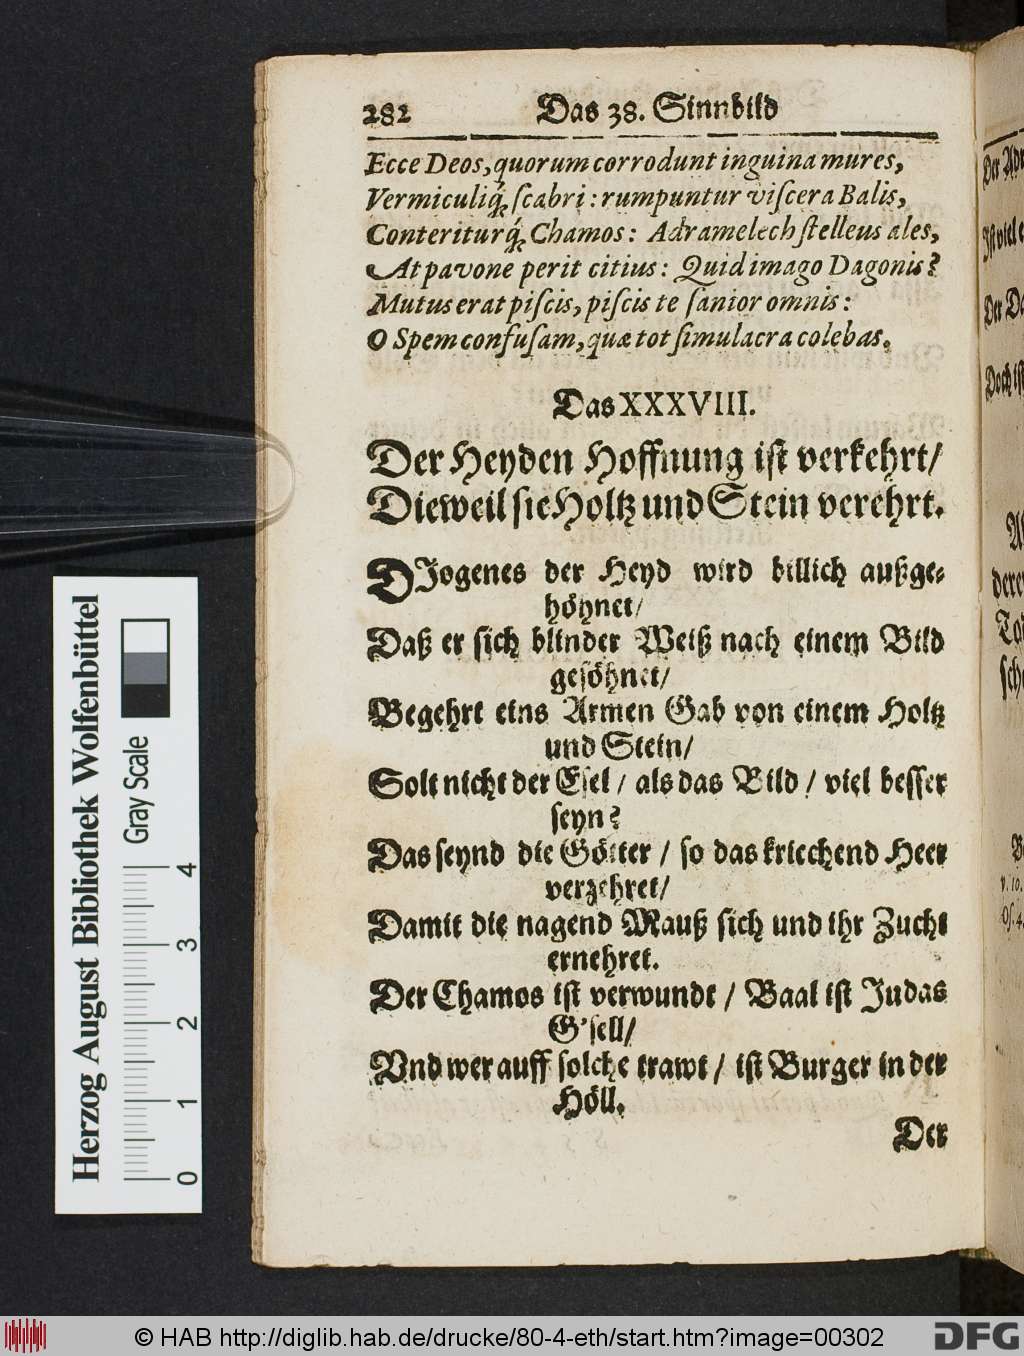 282 Das 38. Sinnbild
Ecce Deos, quorum corrodunt inguina mures,
Vermiculiq́; ſcabri: rumpuntur viſcera Balis,
Conteriturq́; Chamos: Adramelech ſtelleus ales,
At pavone perit citius: Quid imago Dagonis?
Mutus erat piſcis, piſcis te ſanior omnis:
O Spem confuſam, quæ tot ſimulacra colebas.
Das XXXVIII.
Der Heyden Hoffnung iſt verkehrt/
Dieweil ſie Holtz und Stein verehrt.
DJogenes der Heyd wird billich außge-
höhnet/
Daß er ſich blinder Weiß nach einem Bild
geſöhnet/
Begehrt eins Armen Gab von einem Holtz
und Stein/
Solt nicht der Eſel / als das Bild / viel beſſer
ſeyn?
Das ſeynd die Götter / ſo das kriechend Heer
verzehret/
Damit die nagend Mauß ſich und ihr Zucht
ernehret.
Der Chamos iſt verwundt / Baal iſt Judas
G'ſell/
Vnd wer auff ſolche trawt / iſt Burger in der
Höll.
Der
Herzog August Bibliothek Wolfenbüttel
Gray Scale
0 1 2 3 4
© HAB http://diglib.hab.de/drucke/80-4-eth/start.htm?image=00302
DFG